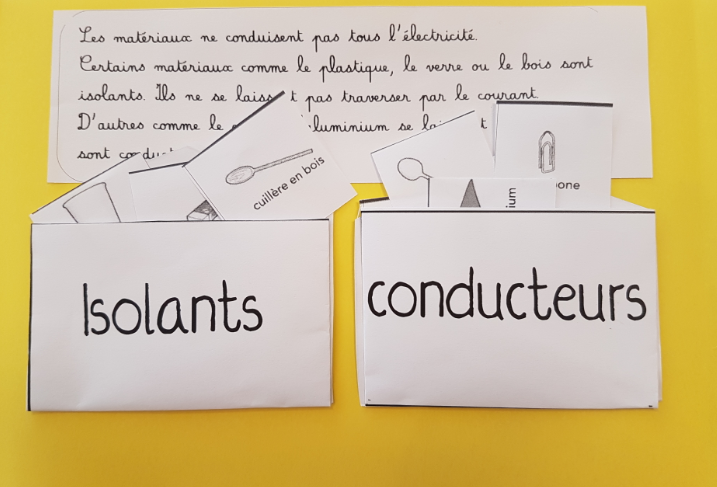 Les matériaux ne conduisent pas tous l'électricité.
Certains matériaux comme le plastique, le verre ou le bois sont
isolants. Ils ne se laiss t pas traverser par le courant
D'autres comme le luminium se la t
sont condu
cuillère en bois
ium
bone
Isolants
conducteurs